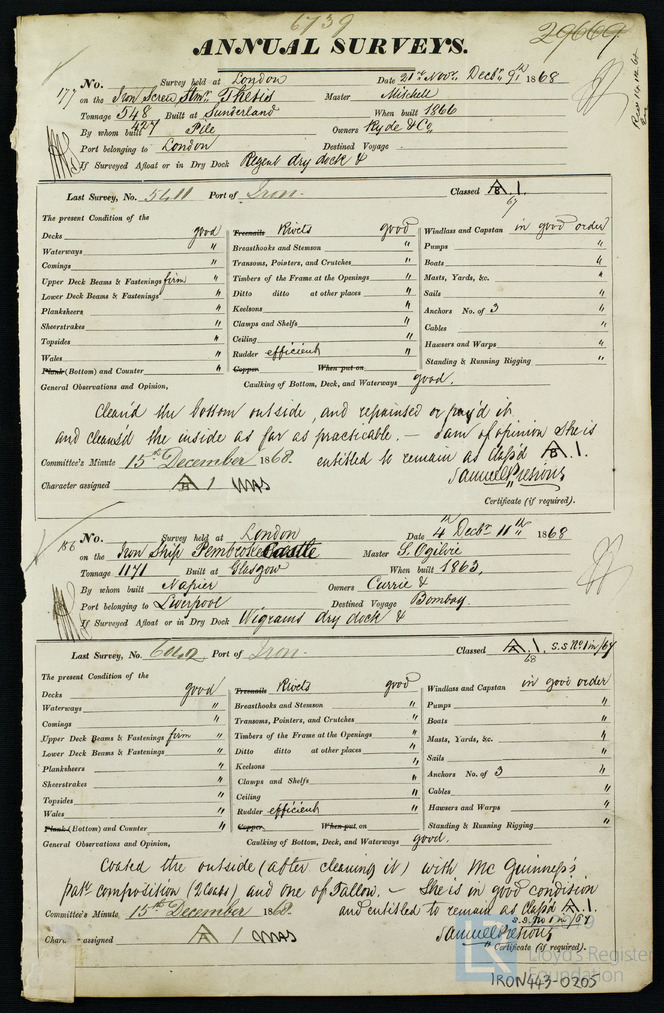 6739
29669
ANNUAL SURVEYS.
177 No. Survey held at London Date 21st Novr. Decbr. 9th 1868
on the Iron Screw Stmr. Thetis Master Mitchell
Tonnage 548 Built at Sunderland When built 1866
427
By whom built Pile Owners Ryde & Co.
Port belonging to London Destined Voyage
If Surveyed Afloat or in Dry Dock Regent dry dock &
Last Survey, No. 5611 Port of Iron. Classed A.1.
67
The present Condition of the
Decks good Treenails Rivets good Windlass and Capstan in good order
Waterways " Breasthooks and Stemson " Pumps "
Comings " Transoms, Pointers, and Crutches " Boats "
Upper Deck Beams & Fastenings firm Timbers of the Frame at the Openings " Masts, Yards, &c. "
Lower Deck Beams & Fastenings " Ditto ditto at other places " Sails "
Planksheers " Keelsons " Anchors No. of 3 "
Sheerstrakes " Clamps and Shelfs " Cables "
Topsides " Ceiling " Hawsers and Warps "
Wales " Rudder efficient " Standing & Running Rigging "
Plank (Bottom) and Counter " Copper When put on
General Observations and Opinion, Caulking of Bottom, Deck, and Waterways good.
Clean'd the bottom outside, and repainted or pay'd it
and cleans'd the inside as far as practicable. — I am of opinion She is
Committee's Minute 15th December 1868. entitled to remain as Class'd A.1.
Character assigned A 1
Certificate (if required).
186 No. Survey held at London Date 4th Decbr. 11th 1868
on the Iron Ship Pembroke Castle Master S. Ogilvie
Tonnage 1171 Built at Glasgow When built 1863,
By whom built Napier Owners Currie &
Port belonging to Liverpool Destined Voyage Bombay.
If Surveyed Afloat or in Dry Dock Wigrams dry dock &
Last Survey, No. Port of Iron. Classed A.1. S.S. No 1 in/67
68
The present Condition of the
Decks good Treenails Rivets good Windlass and Capstan in good order
Waterways " Breasthooks and Stemson " Pumps "
Comings " Transoms, Pointers, and Crutches " Boats "
Upper Deck Beams & Fastenings firm Timbers of the Frame at the Openings " Masts, Yards, &c. "
Lower Deck Beams & Fastenings " Ditto ditto at other places " Sails "
Planksheers " Keelsons " Anchors No. of 3 "
Sheerstrakes " Clamps and Shelfs " Cables "
Topsides " Ceiling " Hawsers and Warps "
Wales " Rudder efficient " Standing & Running Rigging "
Plank (Bottom) and Counter " Copper When put on
General Observations and Opinion, Caulking of Bottom, Deck, and Waterways good.
Coated the outside (after cleaning it) with Mc Guinness's
patt. composition (2 Coats) and one of Tallow. — She is in good condition
Committee's Minute, 15th December 1868. and entitled to remain as Class'd A.1.
S.S. No 1 in/67
Character assigned A 1
Certificate (if required).
LR Lloyd's Register
Foundation
IRON443-0205